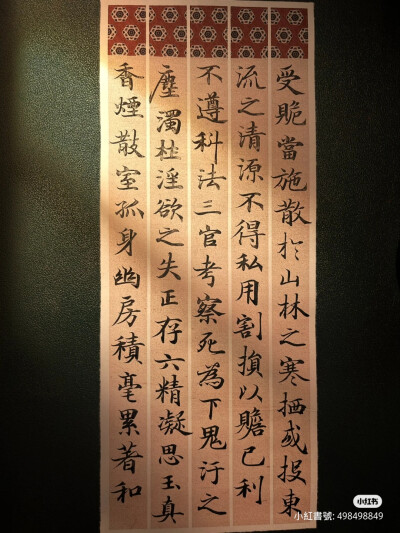 受䞈當施散於山林之寒栖或投東
流之清源不得私用割損以贍己利
不遵科法三官考察死為下鬼汙之
塵濁杜淫欲之失正存六精凝思玉真
香煙散室孤身幽房積毫累著和
小红书
小紅書號: 498498849